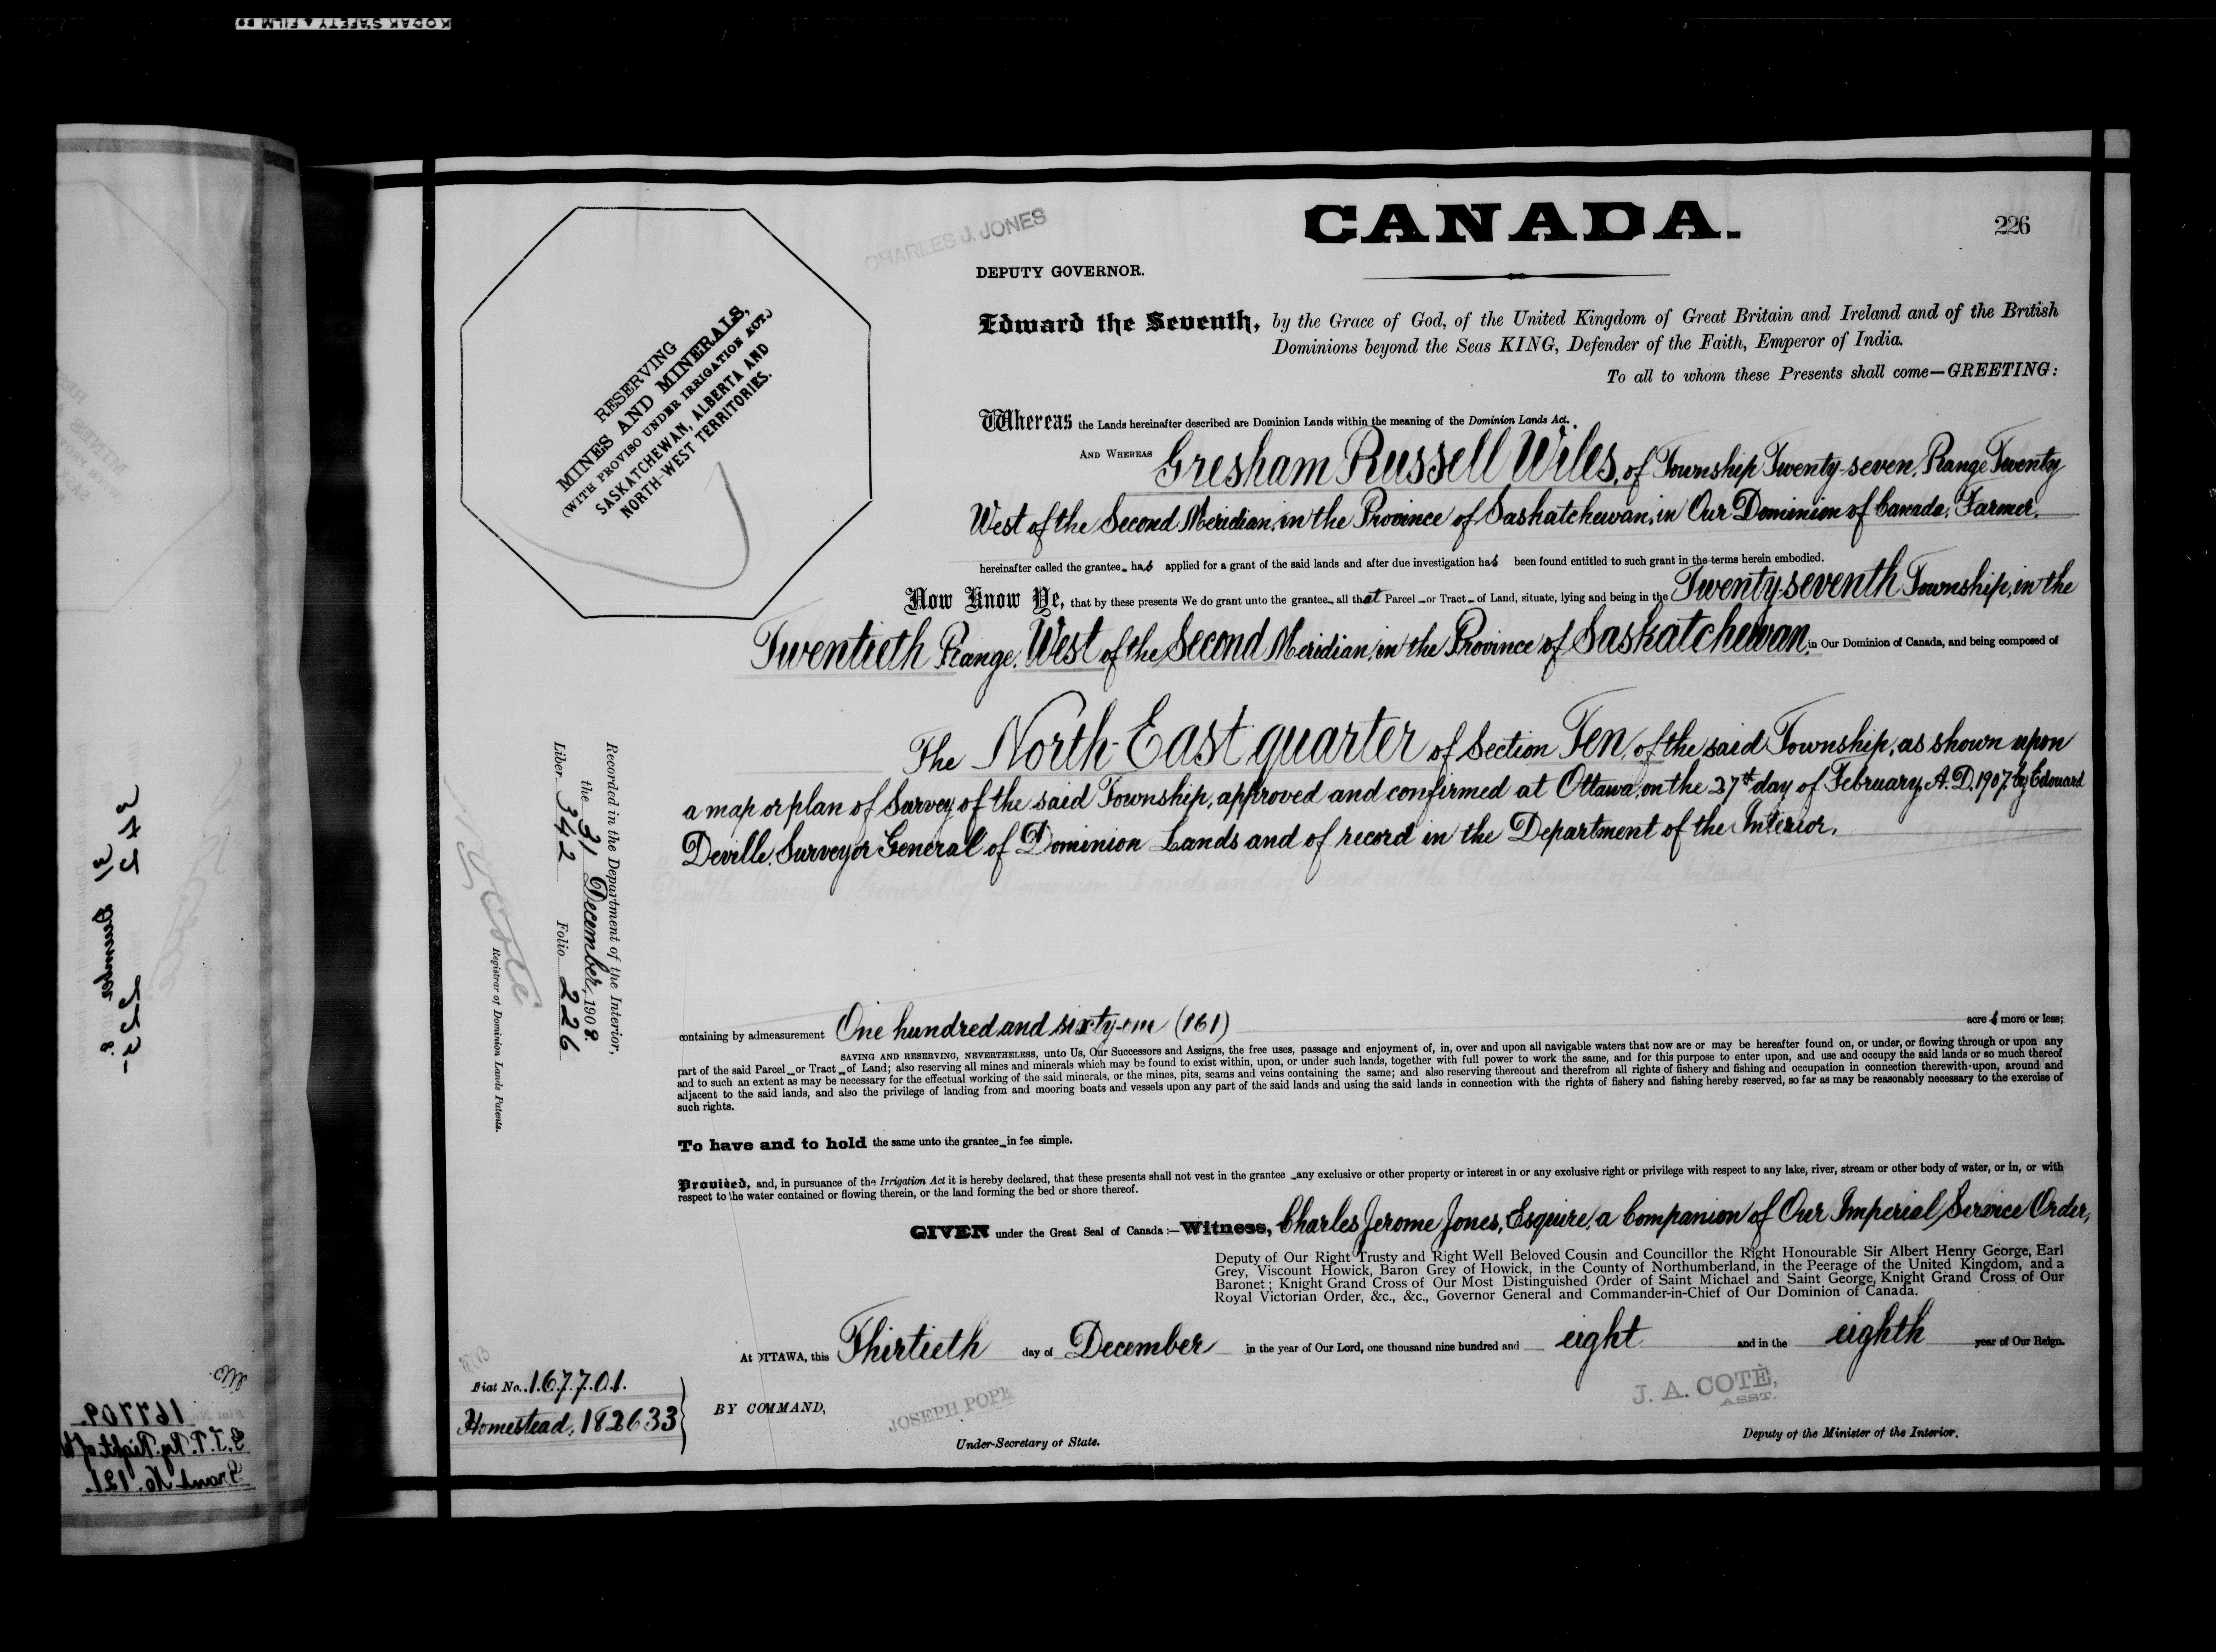 KODAK SAFETY FILM
CANADA.
226
CHARLES J. JONES
DEPUTY GOVERNOR.
Edward the Seventh, by the Grace of God, of the United Kingdom of Great Britain and Ireland and of the British
Dominions beyond the Seas KING, Defender of the Faith, Emperor of India.
To all to whom these Presents shall come—GREETING:
RESERVING
MINES AND MINERALS,
(WITH PROVISO UNDER IRRIGATION ACT.)
SASKATCHEWAN, ALBERTA AND
NORTH-WEST TERRITORIES.
Whereas the Lands hereinafter described are Dominion Lands within the meaning of the Dominion Lands Act.
AND WHEREAS Gresham Russell Wiles, of Township Twenty-seven, Range Twenty
West of the Second Meridian, in the Province of Saskatchewan, in Our Dominion of Canada, Farmer.
hereinafter called the grantee has applied for a grant of the said lands and after due investigation has been found entitled to such grant in the terms herein embodied.
Now Know Ye, that by these presents We do grant unto the grantee all that Parcel or Tract of Land, situate, lying and being in the Twenty-seventh Township, in the
Twentieth Range, West of the Second Meridian, in the Province of Saskatchewan, in Our Dominion of Canada, and being composed of
The North-East quarter of Section Ten, of the said Township, as shown upon
a map or plan of Survey of the said Township, approved and confirmed at Ottawa, on the 27th day of February, A.D. 1907, by Edouard
Deville, Surveyor General of Dominion Lands and of record in the Department of the Interior.
Recorded in the Department of the Interior,
the 31 December, 1908.
Liber 342 Folio 226
N. O. Coté
Registrar of Dominion Lands Patents.
containing by admeasurement One hundred and sixty-one (161) acres more or less;
SAVING AND RESERVING, NEVERTHELESS, unto Us, Our Successors and Assigns, the free uses, passage and enjoyment of, in, over and upon all navigable waters that now are or may be hereafter found on, or under, or flowing through or upon any
part of the said Parcel or Tract of Land; also reserving all mines and minerals which may be found to exist within, upon, or under such lands, together with full power to work the same, and for this purpose to enter upon, and use and occupy the said lands or so much thereof
and to such an extent as may be necessary for the effectual working of the said minerals, or the mines, pits, seams and veins containing the same; and also reserving thereout and therefrom all rights of fishery and fishing and occupation in connection therewith upon, around and
adjacent to the said lands, and also the privilege of landing from and mooring boats and vessels upon any part of the said lands and using the said lands in connection with the rights of fishery and fishing hereby reserved, so far as may be reasonably necessary to the exercise of
such rights.
To have and to hold the same unto the grantee in fee simple.
Provided, and, in pursuance of the Irrigation Act it is hereby declared, that these presents shall not vest in the grantee any exclusive or other property or interest in or any exclusive right or privilege with respect to any lake, river, stream or other body of water, or in, or with
respect to the water contained or flowing therein, or the land forming the bed or shore thereof.
GIVEN under the Great Seal of Canada:—Witness, Charles Jerome Jones, Esquire, a Companion of Our Imperial Service Order,
Deputy of Our Right Trusty and Right Well Beloved Cousin and Councillor the Right Honourable Sir Albert Henry George, Earl
Grey, Viscount Howick, Baron Grey of Howick, in the County of Northumberland, in the Peerage of the United Kingdom, and a
Baronet; Knight Grand Cross of Our Most Distinguished Order of Saint Michael and Saint George, Knight Grand Cross of Our
Royal Victorian Order, &c., &c., Governor General and Commander-in-Chief of Our Dominion of Canada.
At OTTAWA, this Thirtieth day of December in the year of Our Lord, one thousand nine hundred and eight and in the eighth year of Our Reign.
Fiat No. 167701.
Homestead, 182633
BY COMMAND,
JOSEPH POPE
Under-Secretary of State.
J. A. COTÉ,
ASST.
Deputy of the Minister of the Interior.
167709.
G.T.P. Ry. Right of W
Grant No. 121.